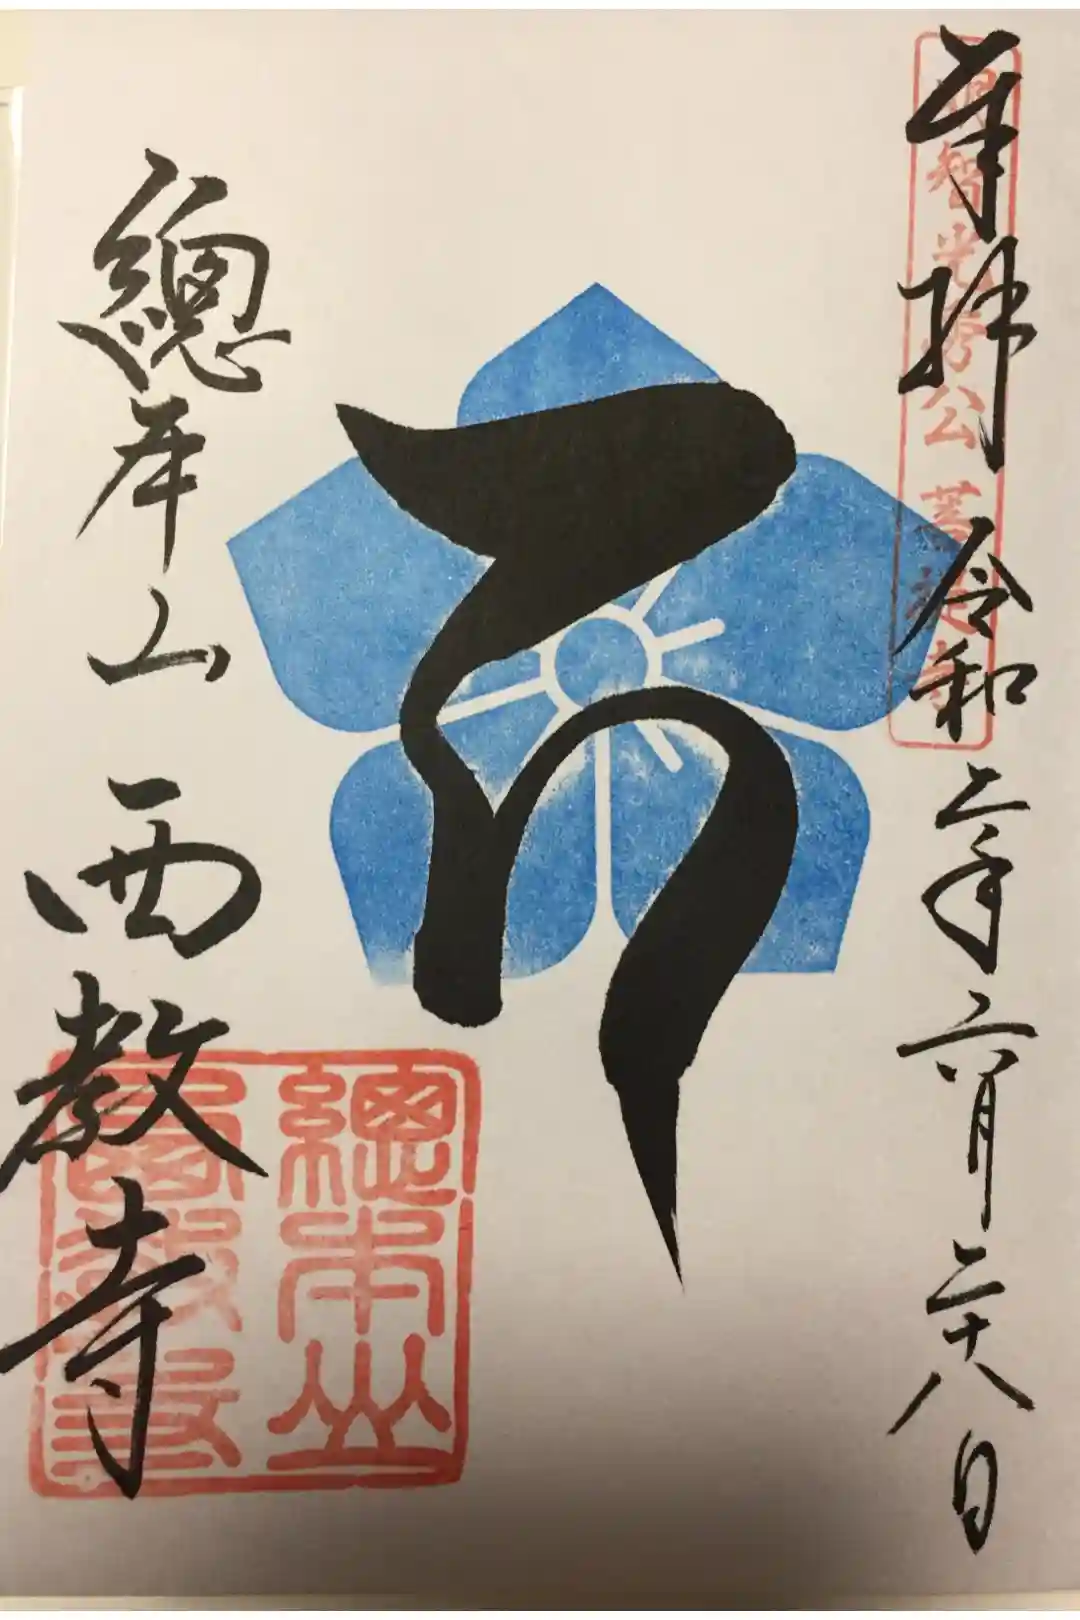 奉拝 令和二年六月二十八日
明智光秀公菩提寺
總本山 西教寺
總本山